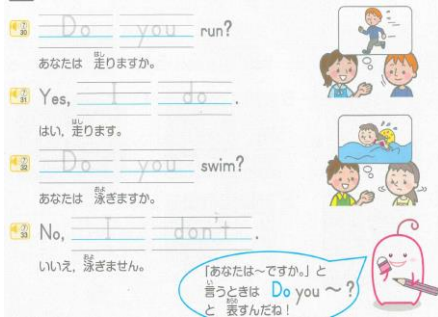 30 Do you run?
あなたは 走りますか。
31 Yes, I do .
はい、走ります。
32 Do you swim?
あなたは 泳ぎますか。
33 No, I don't .
いいえ、泳ぎません。
「あなたは〜ですか。」と
言うときは Do you 〜?
と 表すんだね!